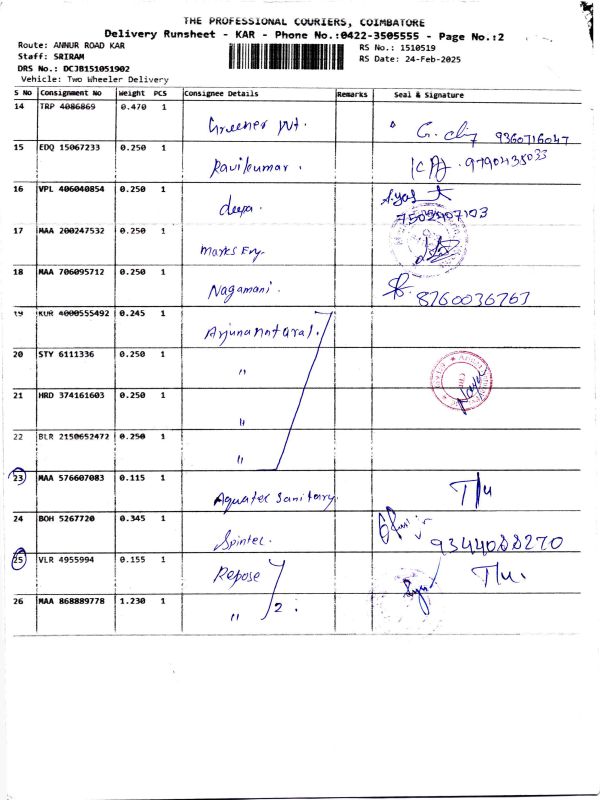 THE PROFESSIONAL COURIERS, COIMBATORE
Delivery Runsheet - KAR - Phone No.:0422-3505555 - Page No.:2
Route: ANNUR ROAD KAR
RS No.: 1510519
Staff: SRIRAM
RS Date: 24-Feb-2025
DRS No.: DCJB151051902
Vehicle: Two Wheeler Delivery
S No Consignment No Weight PCS Consignee Details Remarks Seal & Signature
14 TRP 4086869 0.470 1
Greener Pvt. 9360716047
15 EDQ 15067233 0.250 1
Ravikumar.
16 VPL 406040854 0.250 1
deepa. 7502907103
17 MAA 200247532 0.250 1
Marks Eng.
18 MAA 706095712 0.250 1
Nagamani. 8760036767
19 KUR 4000555492 0.245 1
20 STY 6111336 0.250 1
"
21 HRD 374161603 0.250 1
"
22 BLR 2150652472 0.250 1
"
23 MAA 576607083 0.115 1
Aquatec Sanitary. T/u
24 BOH 5267720 0.345 1
Spintec. 9344088270
25 VLR 4955994 0.155 1
Repose T/u.
26 MAA 868889778 1.230 1
" 2.